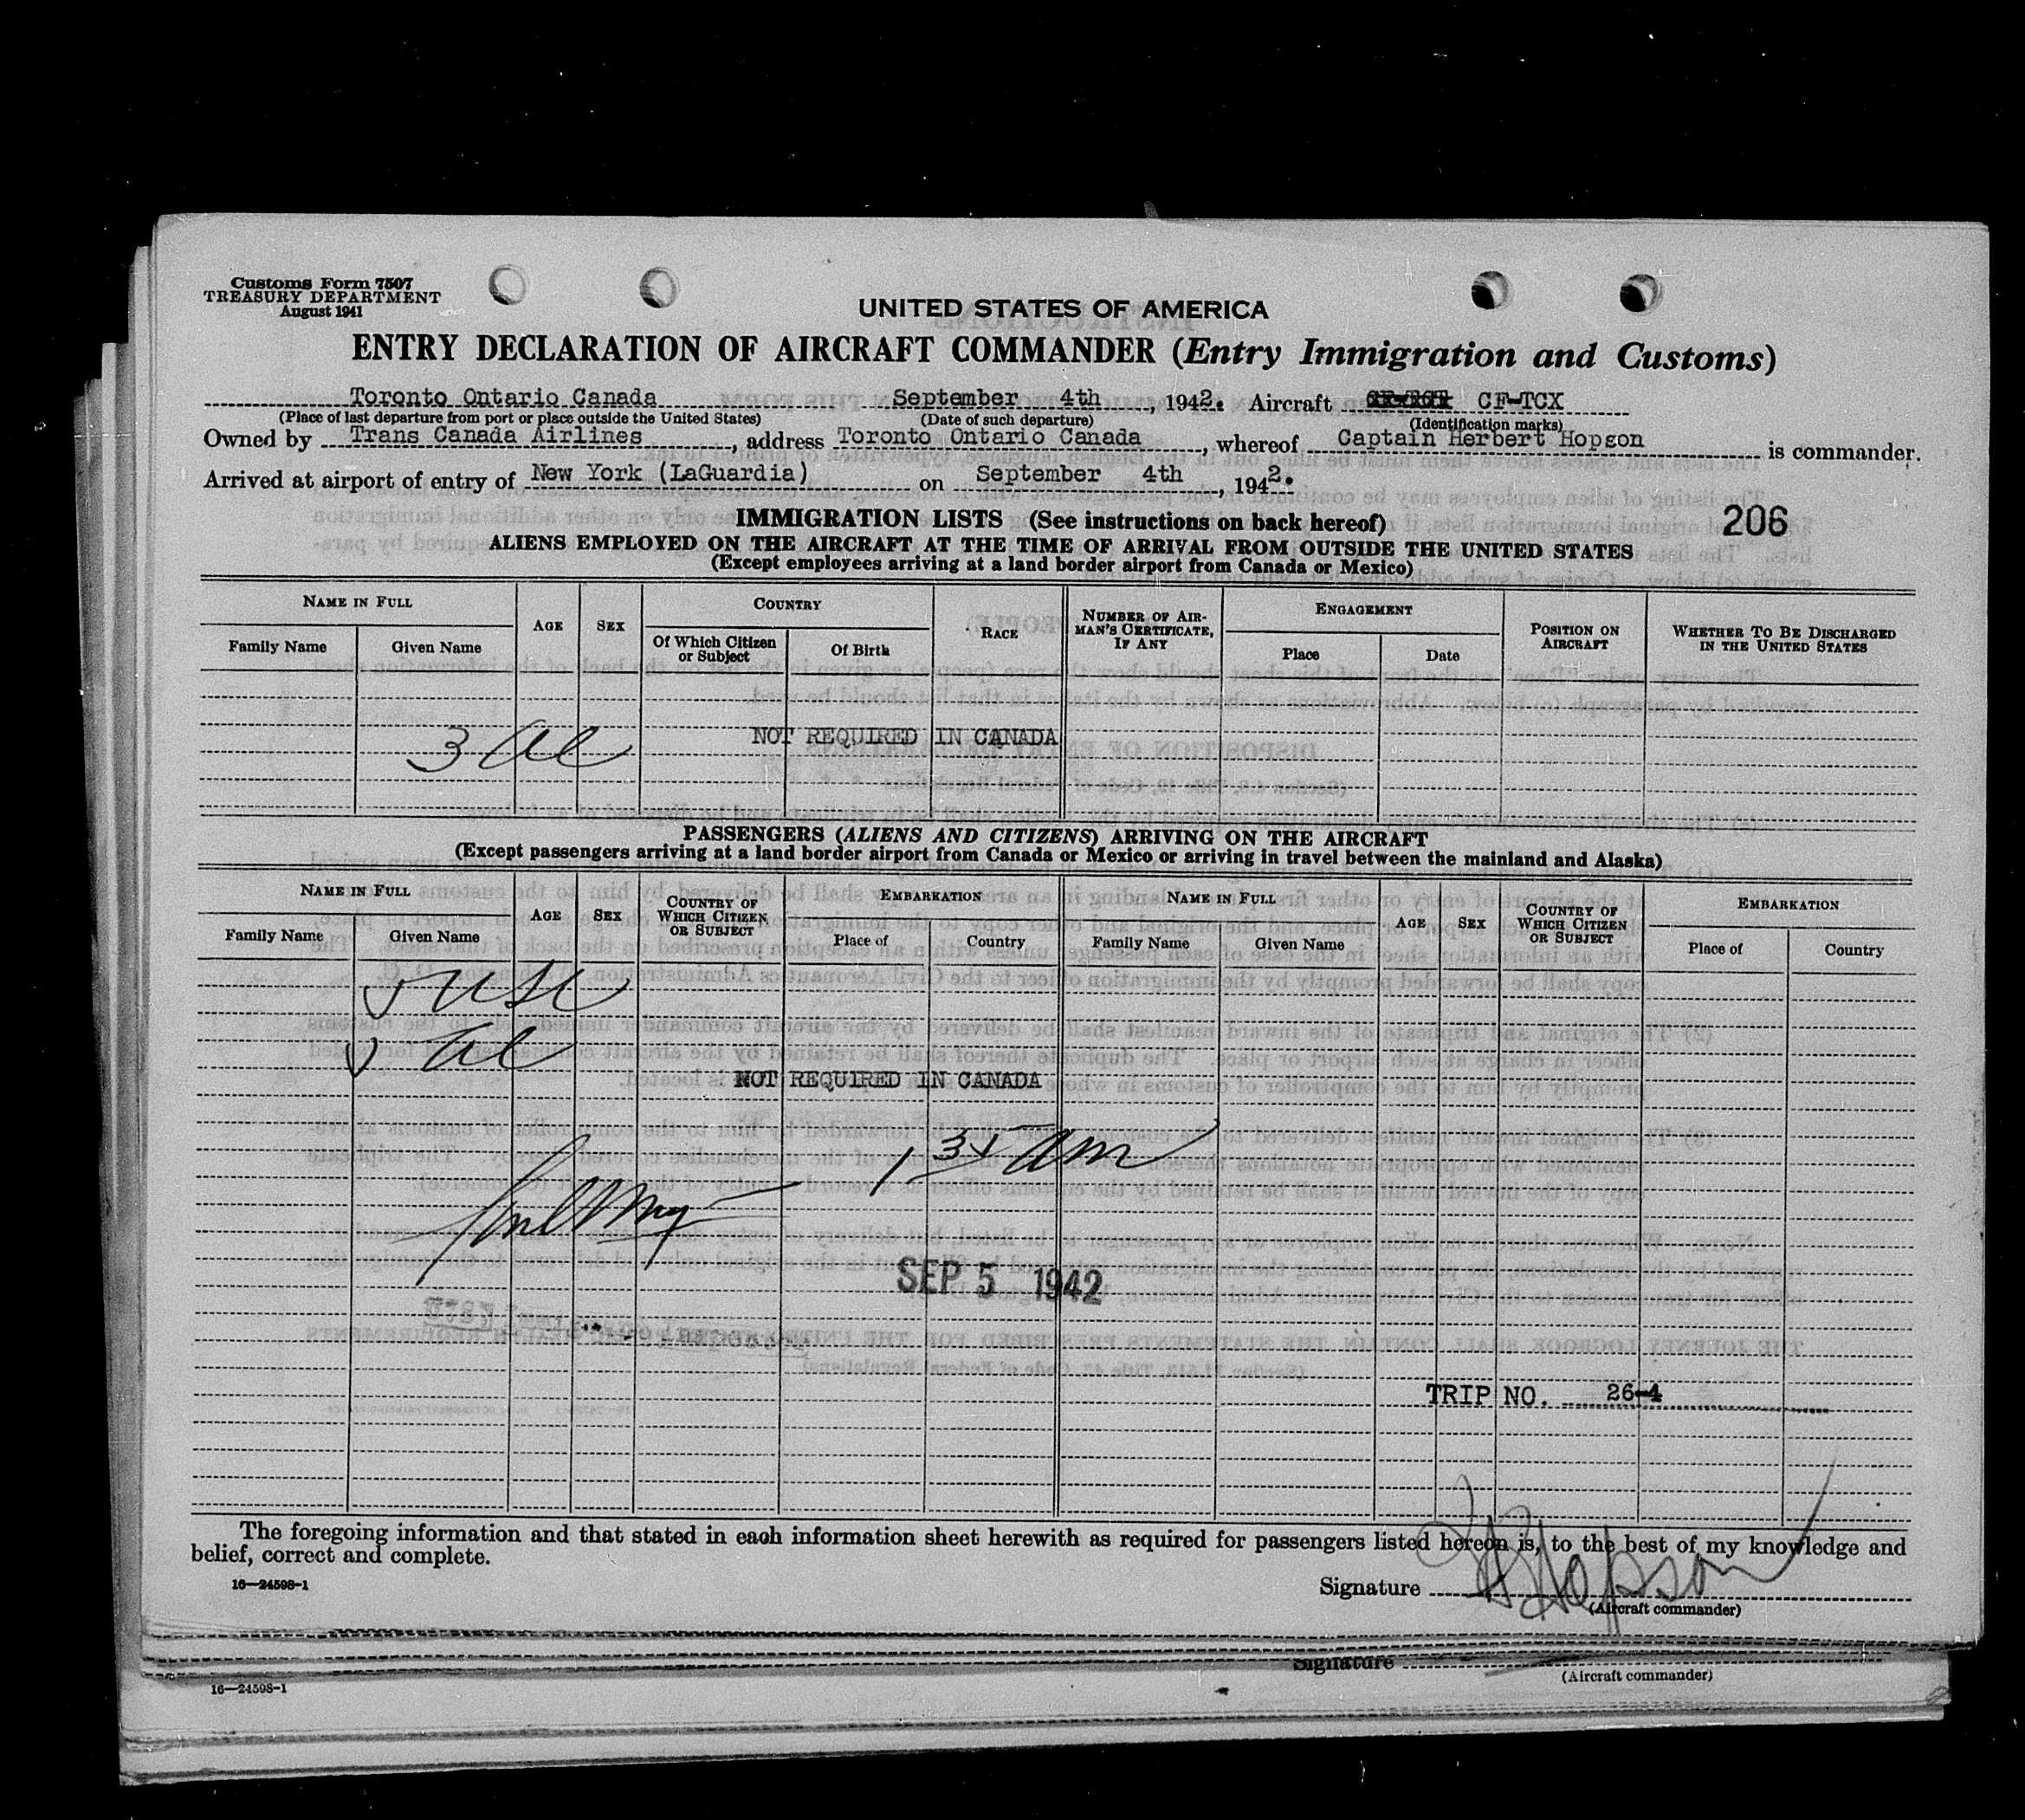 Customs Form 7507
TREASURY DEPARTMENT
August 1941
UNITED STATES OF AMERICA
ENTRY DECLARATION OF AIRCRAFT COMMANDER (Entry Immigration and Customs)
Toronto Ontario Canada September 4th, 1942. Aircraft CF-TCX
(Place of last departure from port or place outside the United States) (Date of such departure) (Identification marks)
Owned by Trans Canada Airlines, address Toronto Ontario Canada, whereof Captain Herbert Hopson is commander.
Arrived at airport of entry of New York (LaGuardia) on September 4th, 1942.
IMMIGRATION LISTS (See instructions on back hereof) 206
ALIENS EMPLOYED ON THE AIRCRAFT AT THE TIME OF ARRIVAL FROM OUTSIDE THE UNITED STATES
(Except employees arriving at a land border airport from Canada or Mexico)
NAME IN FULL AGE SEX COUNTRY RACE NUMBER OF AIRMAN'S CERTIFICATE, IF ANY ENGAGEMENT POSITION ON AIRCRAFT WHETHER TO BE DISCHARGED IN THE UNITED STATES
Family Name Given Name Of Which Citizen or Subject Of Birth Place Date
3 al NOT REQUIRED IN CANADA
PASSENGERS (ALIENS AND CITIZENS) ARRIVING ON THE AIRCRAFT
(Except passengers arriving at a land border airport from Canada or Mexico or arriving in travel between the mainland and Alaska)
NAME IN FULL AGE SEX COUNTRY OF WHICH CITIZEN OR SUBJECT EMBARKATION NAME IN FULL AGE SEX COUNTRY OF WHICH CITIZEN OR SUBJECT EMBARKATION
Family Name Given Name Place of Country Family Name Given Name Place of Country
USC
al
NOT REQUIRED IN CANADA
1 35 am
SEP 5 1942
TRIP NO. 26-4
The foregoing information and that stated in each information sheet herewith as required for passengers listed hereon is, to the best of my knowledge and
belief, correct and complete.
16—24598-1
Signature Hopson
(Aircraft commander)
Signature
16—24598-1 (Aircraft commander)